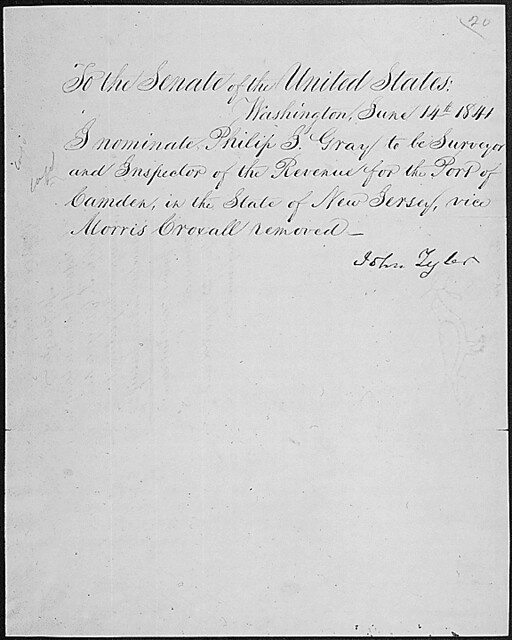 20
To the Senate of the United States:
Washington, June 14th 1841
I nominate Philip J. Gray to be Surveyor
and Inspector of the Revenue for the Port of
Camden, in the State of New Jersey, vice
Morris Croxall removed—
John Tyler